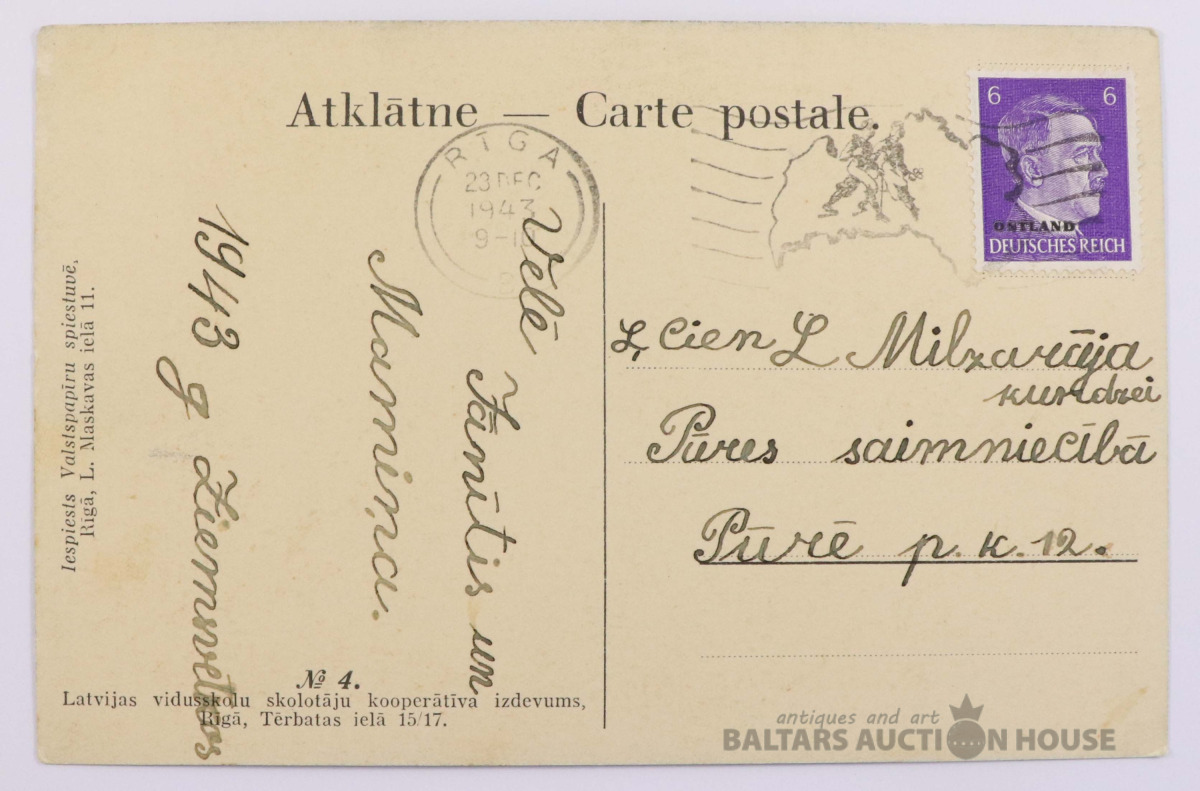 Atklātne — Carte postale.
RĪGA
23 DEC
1943
9-10
6 6
OSTLAND
DEUTSCHES REICH
Ļ. Cien L Milzarāja
kundzei
Pūres saimniecībā
Pūrē p. k. 12.
Vēlē
Jānītis un
Mamiņa.
1943 g Ziemsvētkos
Iespiests Valstspapīru spiestuvē,
Rīgā, L. Maskavas ielā 11.
№ 4.
Latvijas vidusskolu skolotāju kooperātīva izdevums,
Rīgā, Tērbatas ielā 15/17.
antiques and art
BALTARS AUCTION HOUSE